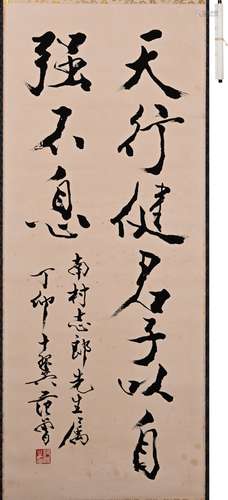 天行健君子以自
强不息
南村志郎先生属
丁卯十翼范曾